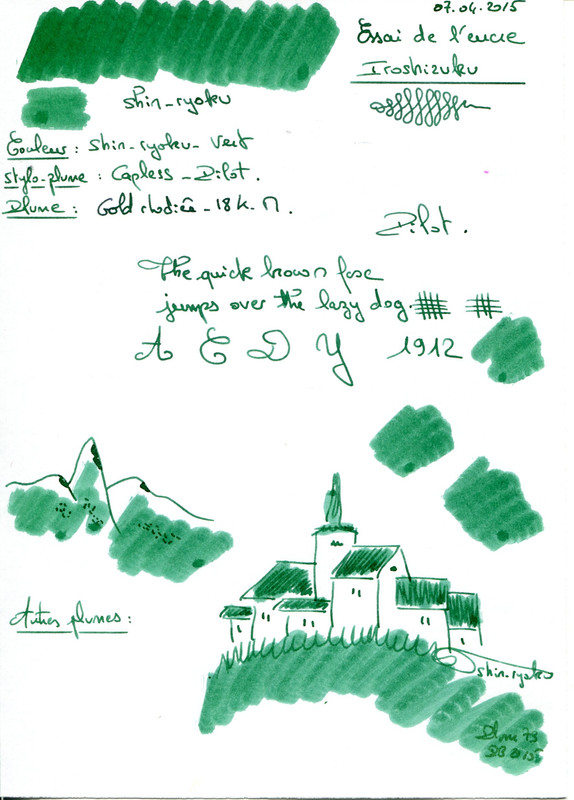 07.04.2015
Essai de l'encre
Iroshizuku
shin-ryoku
Couleur : shin-ryoku - Vert
stylo-plume : Capless - Pilot.
Plume : Gold rhodiée - 18 K. M.
Pilot.
The quick brown fox
jumps over the lazy dog.
A E D Y 1912
Autres plumes :
shin-ryoku